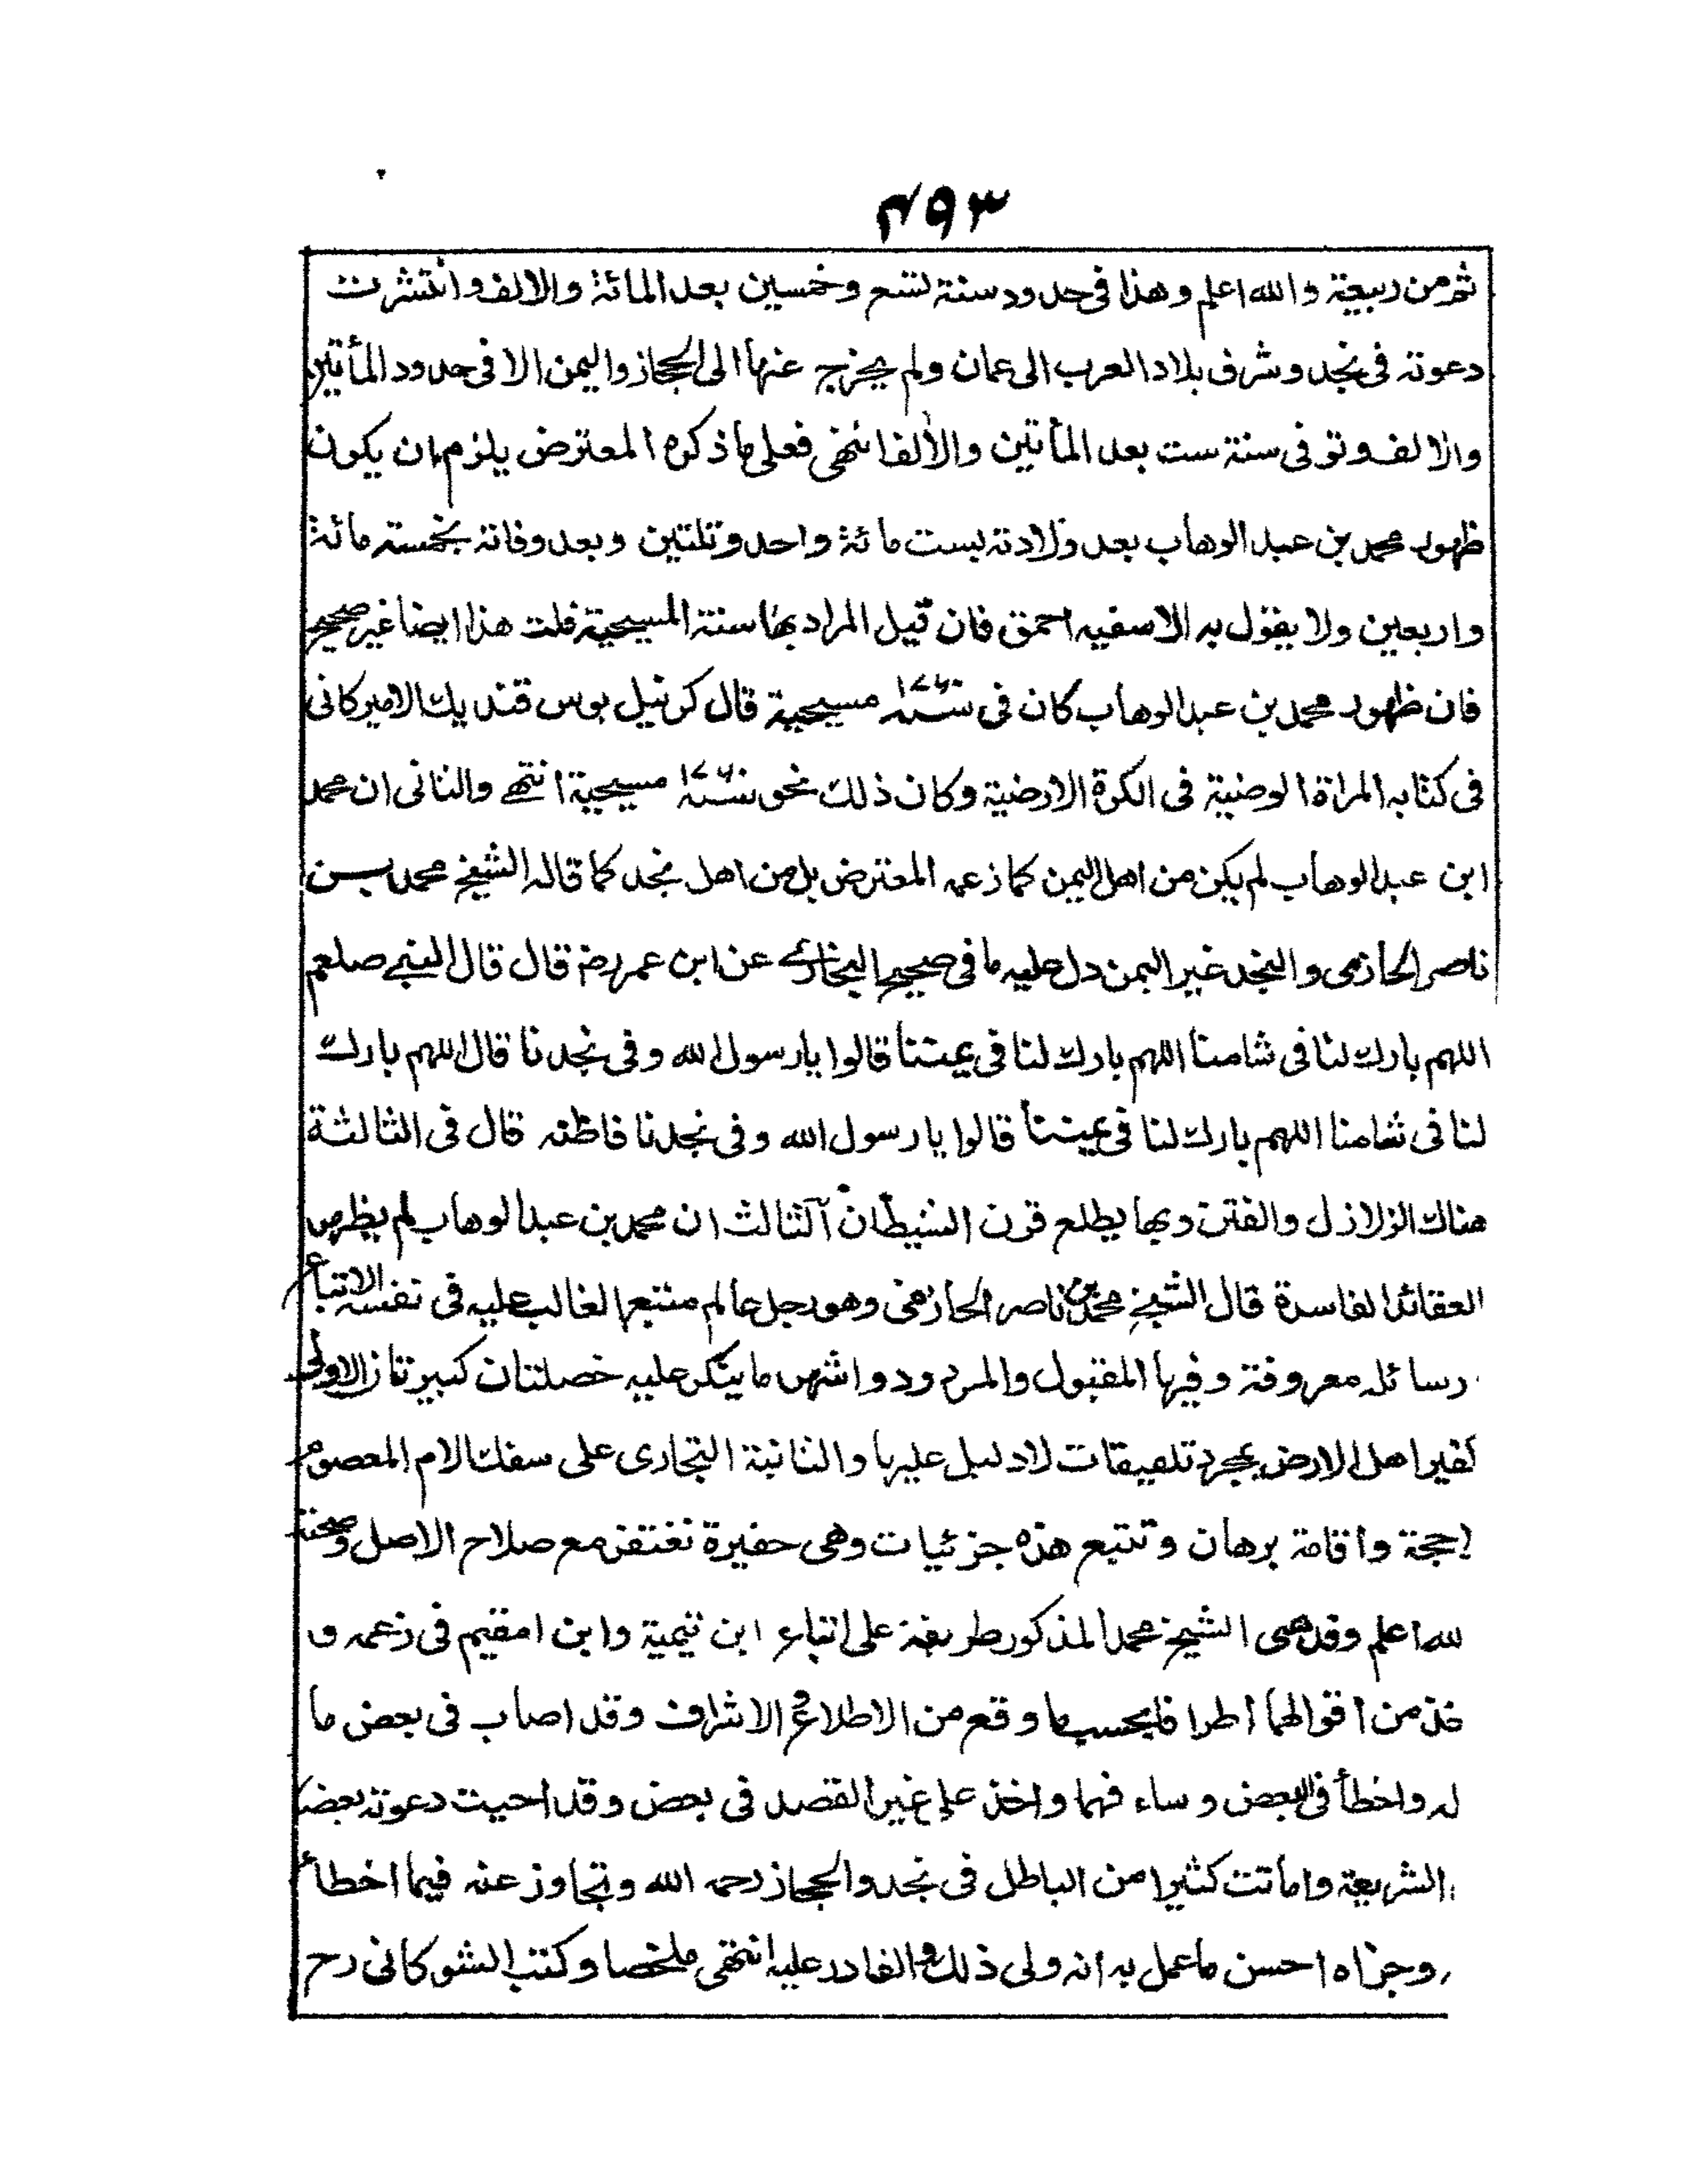 ٤٩٣
ثم من ربيعة والله اعلم وهذا فى حدود سنة تسع وخمسين بعد المائة والالف وانتشرت
دعوته فى نجد وشرف بلاد العرب الى عمان ولم يخرج عنها الى الحجاز واليمن الا فى حدود المأتين
والالف وتوفى سنة ست بعد المأتين والالف انتهى فعلى ما ذكره المعترض يلزم ان يكون
ظهور محمد بن عبد الوهاب بعد ولادته بست مائة واحد وثلثين وبعد وفاته بخمسته مائة
واربعين ولا يقول به الا سفيه احمق فان قيل المراد بها سنة المسيحية قلت هذا ايضا غير صحيح
فان ظهور محمد بن عبد الوهاب كان فى سنة ١٧٦٠ مسيحية قال كرنيل بوس قنديك الاميركانى
فى كتابه المراة الوضية فى الكرة الارضية وكان ذلك نحو سنة ١٧٦٠ مسيحية انتهے والثانى ان محمد
ابن عبد الوهاب لم يكن من اهل اليمن كما زعمه المعترض بل من اهل نجد كما قاله الشيخ محمد بن
ناصر الحازمى والنجد غير اليمن دل عليه ما فى صحيح البخارے عن ابن عمر رضـ قال قال النبے صلعم
اللهم بارك لنا فى شامنا اللهم بارك لنا فى يمننا قالوا يا رسول الله وفى نجدنا قال اللهم بارك
لنا فى شامنا اللهم بارك لنا فى يمننا قالوا يا رسول الله وفى نجدنا فاظنه قال فى الثالثة
هناك الزلازل والفتن وبها يطلع قرن الشيطان الثالث ان محمد بن عبد الوهاب لم يظهر
العقائد الفاسدة قال الشيخ محمد بن ناصر الحازمى وهو رجل عالم متتبع الغالب عليه فى نفسه الاتباع
رسائله معروفة وفيها المقبول والمردود واشهر ما ينكر عليه خصلتان كبيرتان الاولى
كفير اهل الارض بمجرد تلفيقات لا دليل عليها والثانية التجارى على سفك الدم المعصوم
حجة واقامة برهان وتتبع هذه جزئيات وهى حقيرة تغتفر مع صلاح الاصل وصحته
لله اعلم وقد الشيخ محمد المذكور طريقة على اتباع ابن تيمية وابن القيم فى زعمه و
خذ من اقوالهما اطرافا بحسب ما وقع من الاطلاع و الاشراف وقد اصاب فى بعض ما
له واخطأ فى البعض وساء فهما واخذ على غير القصد فى بعض وقد احيت دعوته بعض
الشريعة واماتت كثيرا من الباطل فى نجد والحجاز رحمه الله وتجاوز عنه فيما اخطأ
وجزاه احسن ما عمل به انه ولى ذلك والقادر عليه انتهى ملخصا وكتب الشوكانى رح